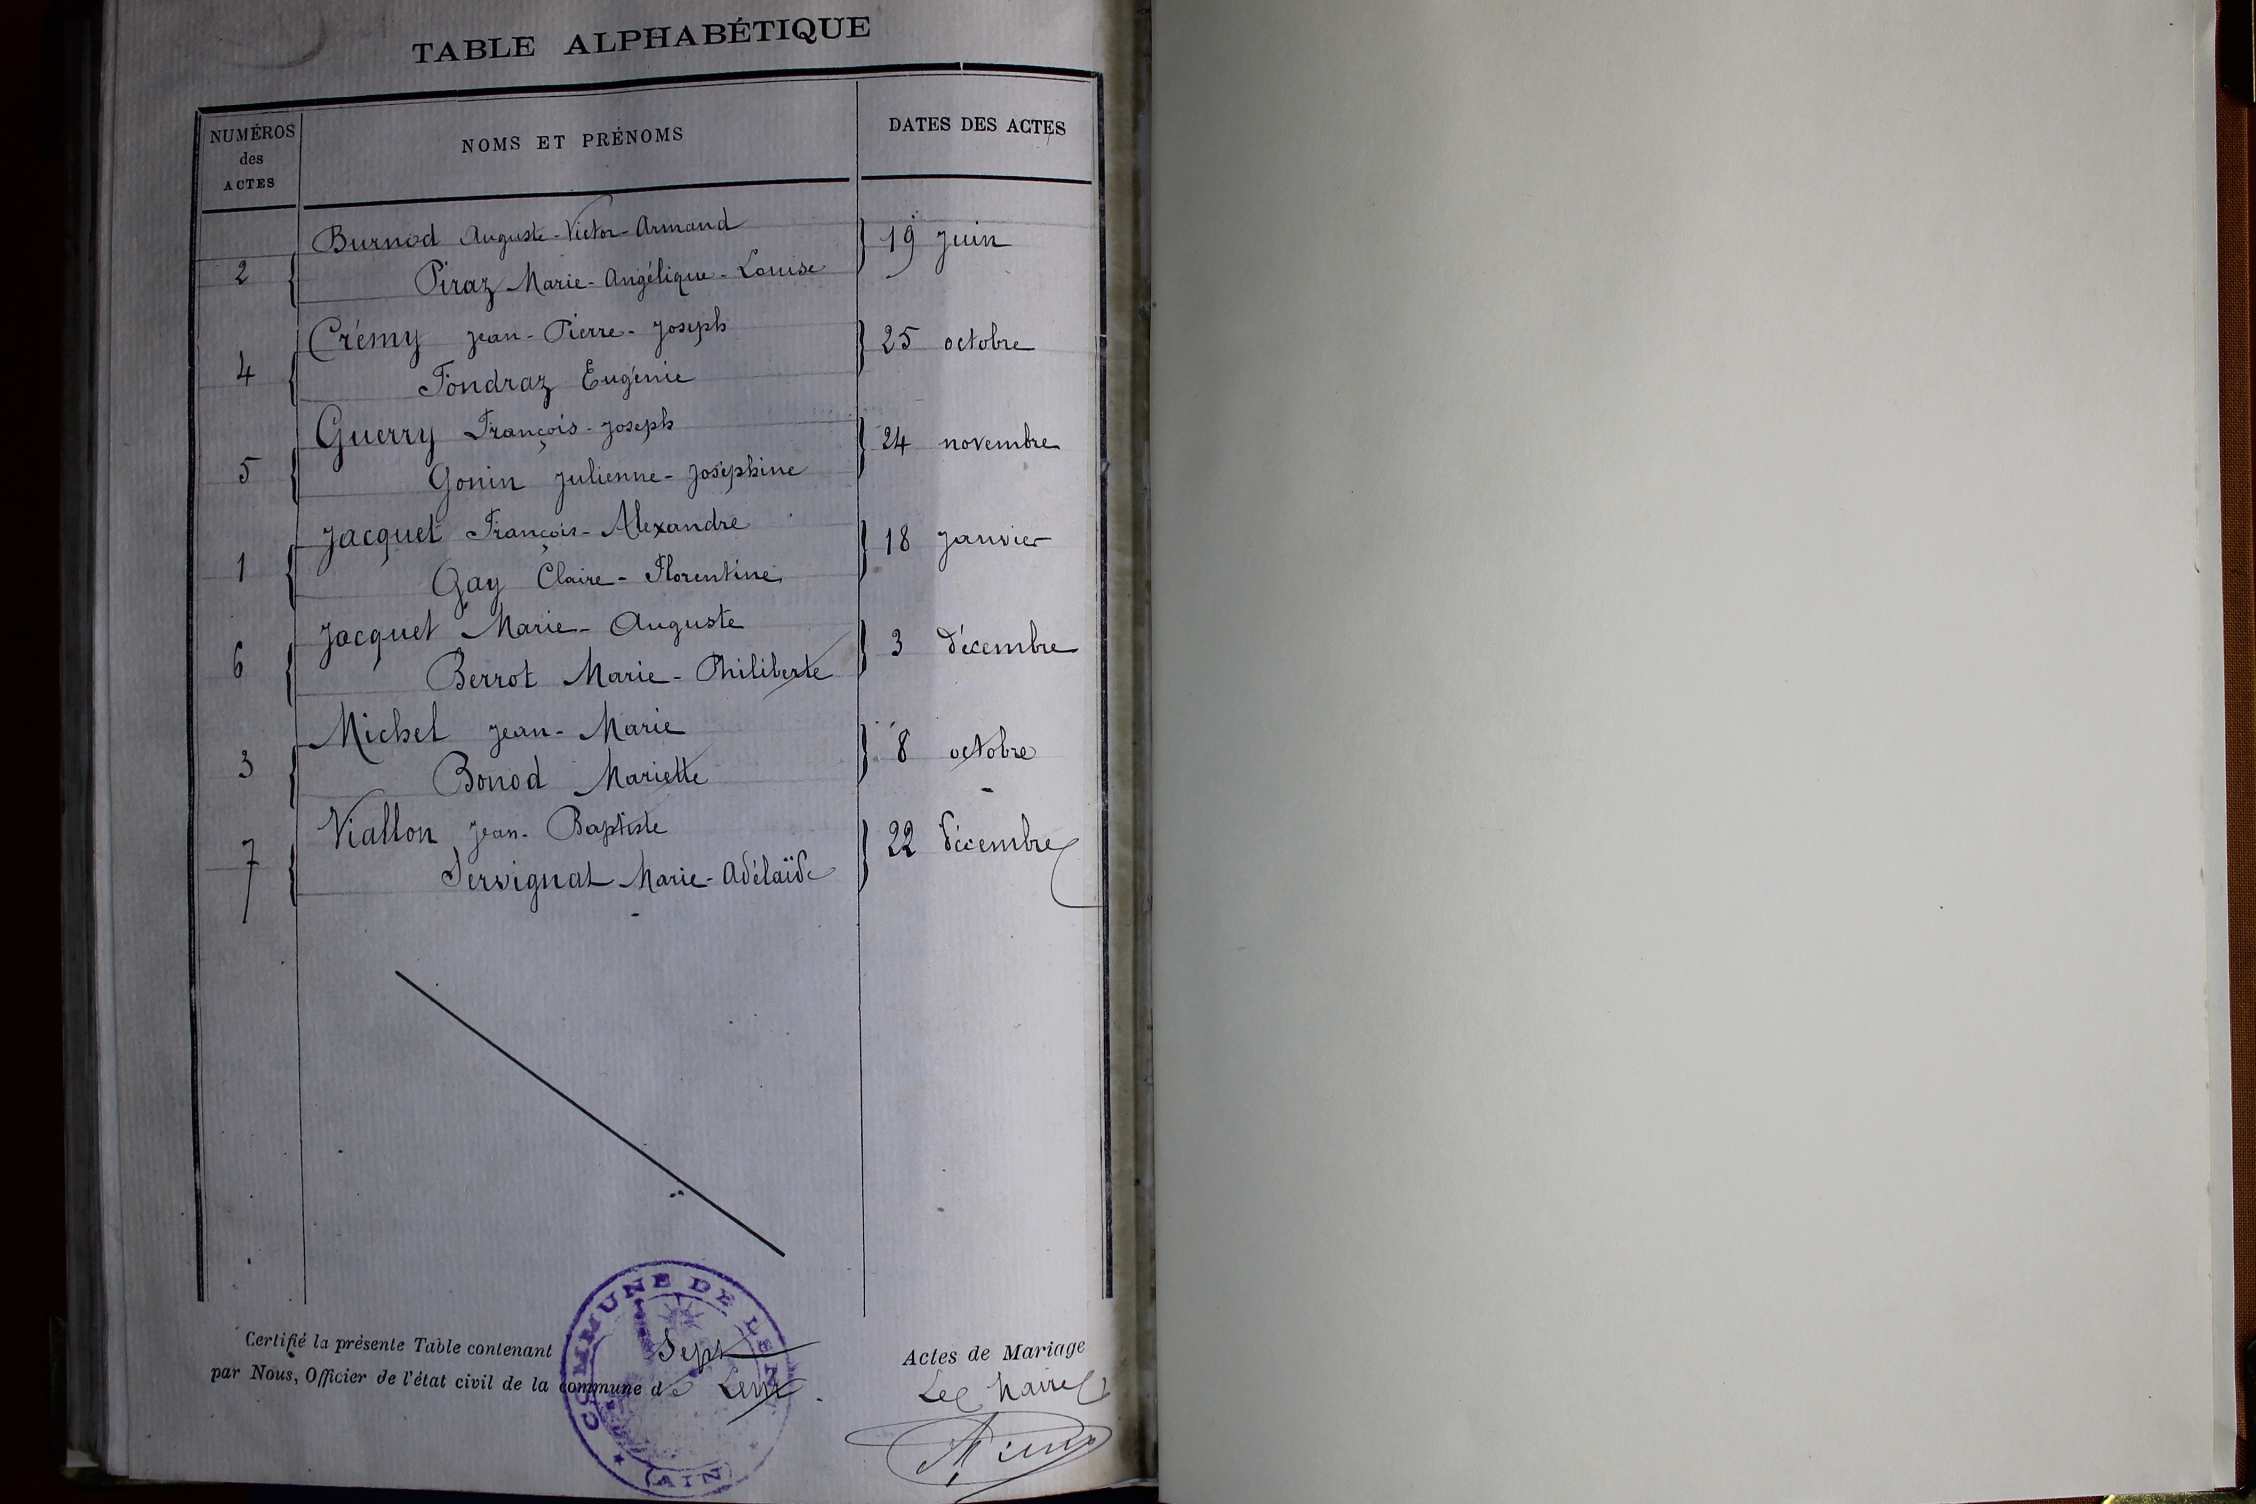 TABLE ALPHABÉTIQUE
NUMÉROS des ACTES NOMS ET PRÉNOMS DATES DES ACTES
Burnod Auguste-Victor-Armand
2 Piraz Marie-Angélique-Louise 19 juin
Crémy Jean-Pierre-Joseph
4 Fondraz Eugénie 25 octobre
Guerry François-Joseph
5 Gonin Julienne-Joséphine 24 novembre
Jacquet François-Alexandre
1 Gay Claire-Florentine 18 janvier
Jacquet Marie-Auguste
6 Berrot Marie-Philiberte 3 décembre
Michel Jean-Marie
3 Bonod Mariette 8 octobre
Viallon Jean-Baptiste
7 Servignat Marie-Adélaïde 22 décembre
Certifié la présente Table contenant Sept Actes de Mariage
par Nous, Officier de l'état civil de la commune de Lent
Le Maire
COMMUNE DE LENT
(AIN)